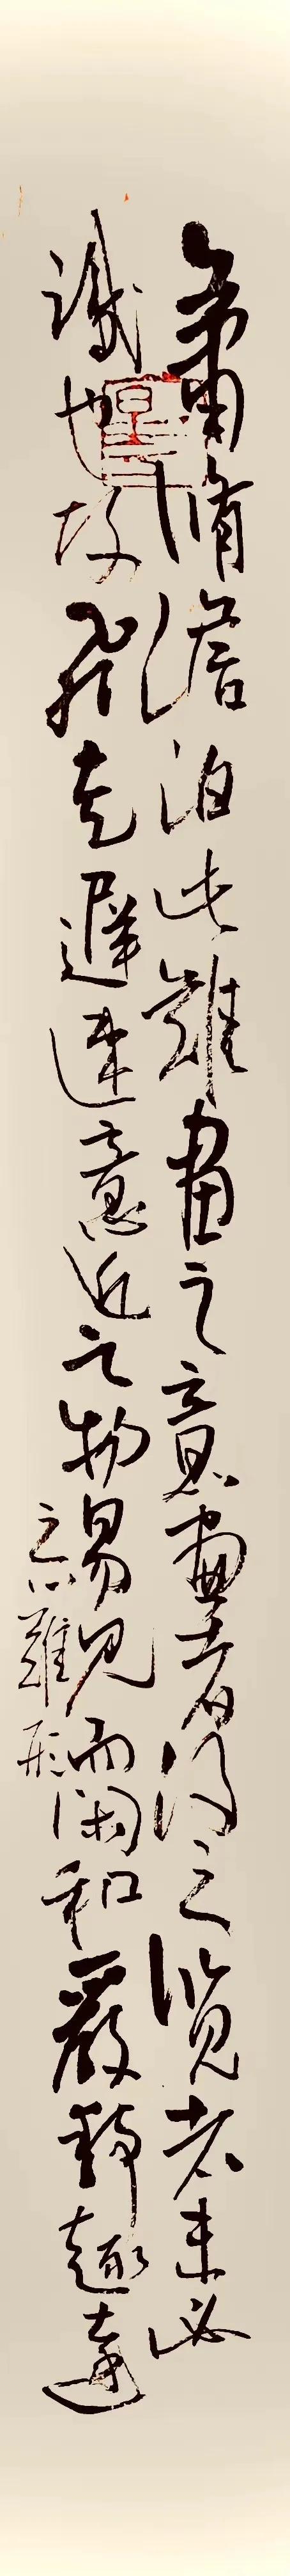 蕭條澹泊此難畫之意畫者得之覽者未必
識也故飛走遲速意近之物易見而閑和嚴靜趣遠
之心難形